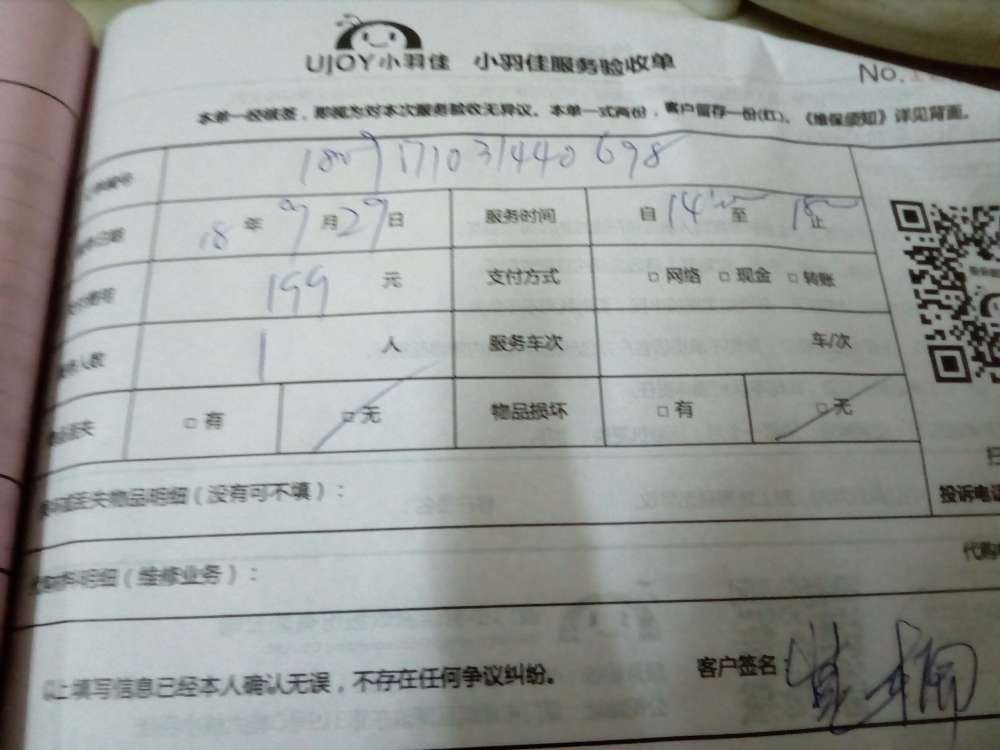 UJOY小羽佳 小羽佳服务验收单
No.
本单一经核签，即视为对本次服务验收无异议。本单一式两份，客户留存一份(红)。《维保须知》详见背面。
编号 171031440698
日期 18年9月29日 服务时间 自14:00至18:00止
199元 支付方式 □网络 □现金 □转账
人数 1人 服务车次 车/次
丢失 □有 □无 物品损坏 □有 □无
丢失物品明细（没有可不填）：
投诉电话
料明细（维修业务）：
代购
以上填写信息已经本人确认无误，不存在任何争议纠纷。 客户签名：